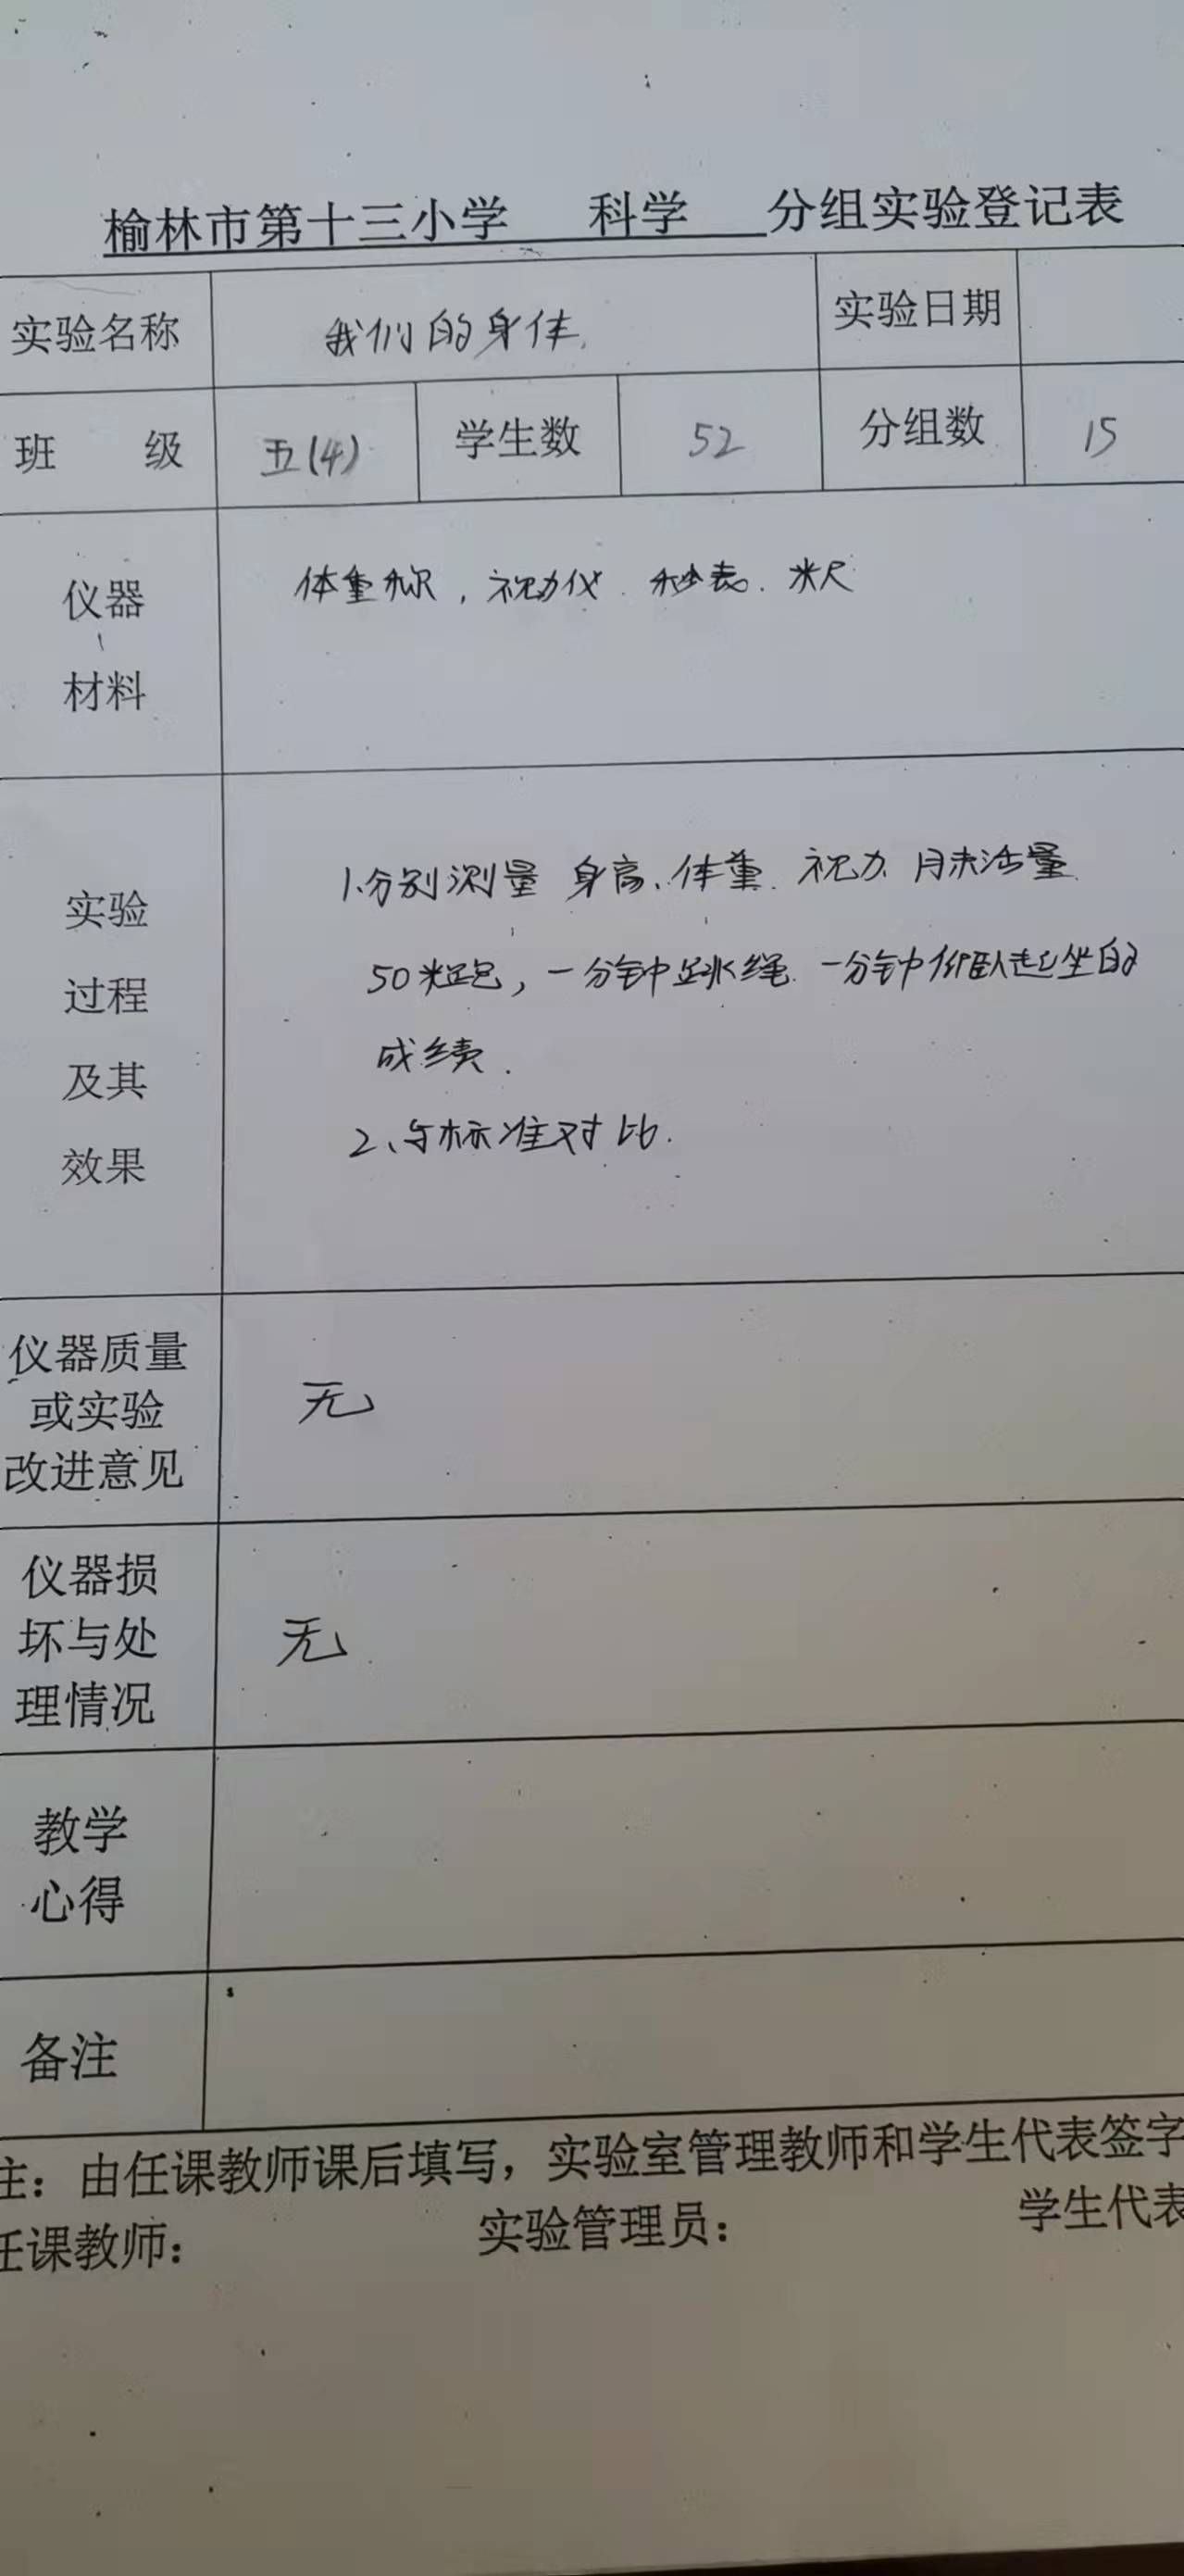 榆林市第十三小学 科学 分组实验登记表
实验名称 我们的身体. 实验日期
班 级 五(4) 学生数 52 分组数 15
仪器 体重秤, 视力仪. 秒表. 米尺
材料
实验 1.分别测量 身高、体重. 视力. 肺活量.
过程 50米跑, 一分钟跳绳. 一分钟仰卧起坐的
及其 成绩.
效果 2、与标准对比.
仪器质量
或实验 无
改进意见
仪器损
坏与处 无
理情况
教学
心得
备注
注：由任课教师课后填写，实验室管理教师和学生代表签字
任课教师： 实验管理员： 学生代表